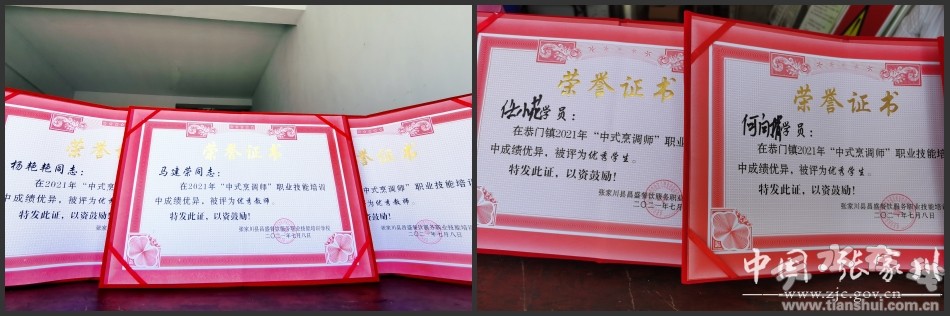 荣誉证
杨艳艳同志：
在2021年“中式烹
中成绩优异，被评为
特发此证，以资鼓励！
荣誉证书
马建荣同志：
在2021年“中式烹调师”职业技能培训
中成绩优异，被评为优秀教师。
特发此证，以资鼓励！
张家川县昌盛餐饮服务职业技能培训学校
二〇二一年七月八日
证书
调师”职业技能培训
为优秀教师。
励！
职业技能培训学校
年七月八日
荣誉证书
学员：
在恭门镇2021年“中式烹调师”职业
中成绩优异，被评为优秀学生。
特发此证，以资鼓励！
张家川县昌盛餐饮服务职业
二〇二一年七月
荣誉证书
学员：
在恭门镇2021年“中式烹调师”职业技能培
中成绩优异，被评为优秀学生。
特发此证，以资鼓励！
张家川县昌盛餐饮服务职业技能培训
二〇二一年七月八日
中国·张家川
www.zjc.gov.cn
www.tianshui.com.cn